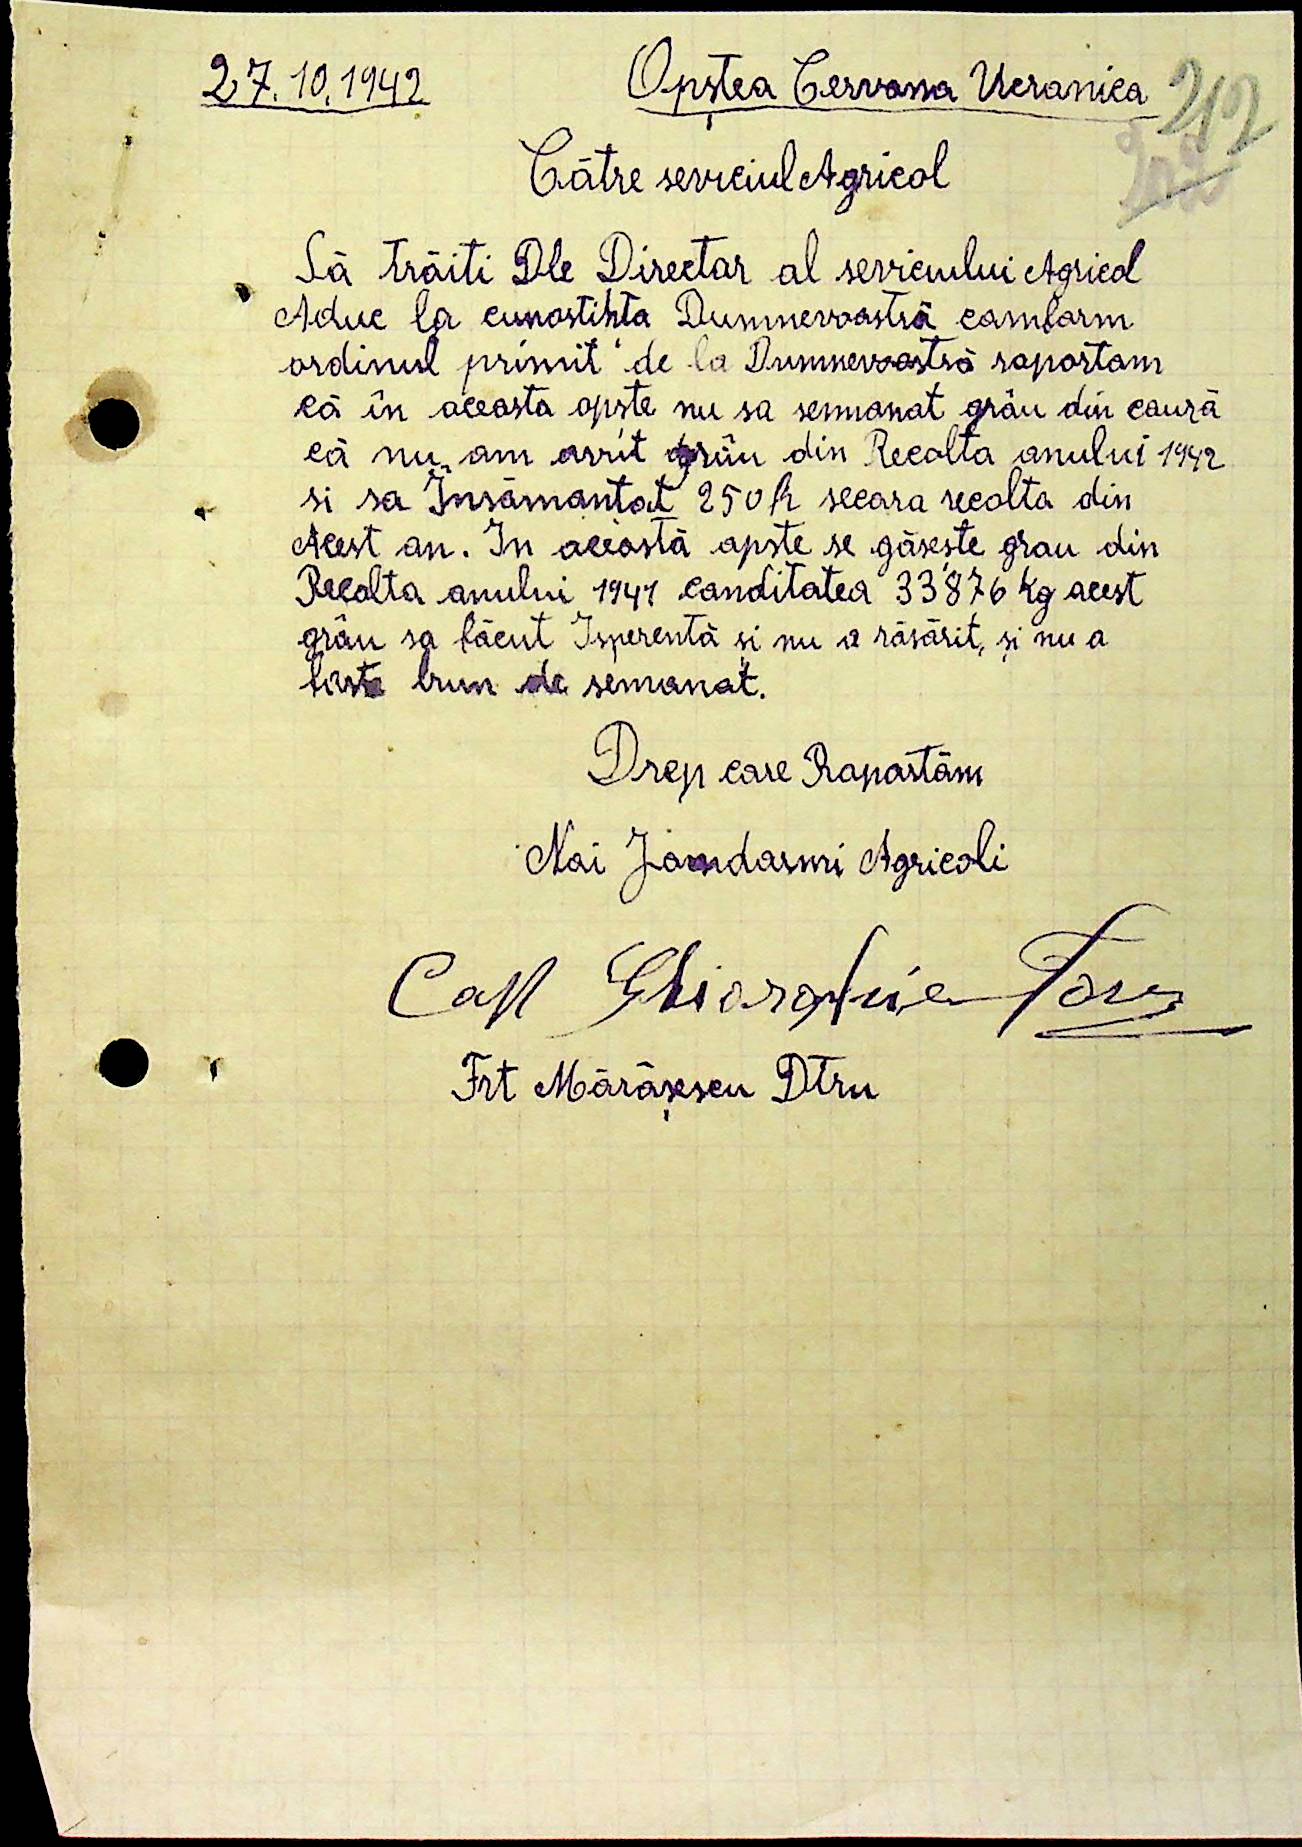 27.10.1942 Opștea Cervona Ucranica 212
Către seviciul Agricol
Să trăiti Dle Directar al serviciului Agricol
Aduc la cunostihta Dumnevoastră comform
ordinul primit de la Dumnevoastră raportam
că în aceasta opste nu sa semnanat grâu din cauză
că nu am avvit grâu din Recolta anului 1942
si sa Însămantat 250 h secara recolta din
Acest an. In această opste se găsește grau din
Recolta anului 1941 canditatea 33876 kg acest
grâu sa făcut Isperentă și nu a răsărit, și nu a
fost bun de semanat.
Drep care Raportăm
Noi Jandarmi Agricoli
Cap Ghiorghie
Frt Mărășescu Dtru